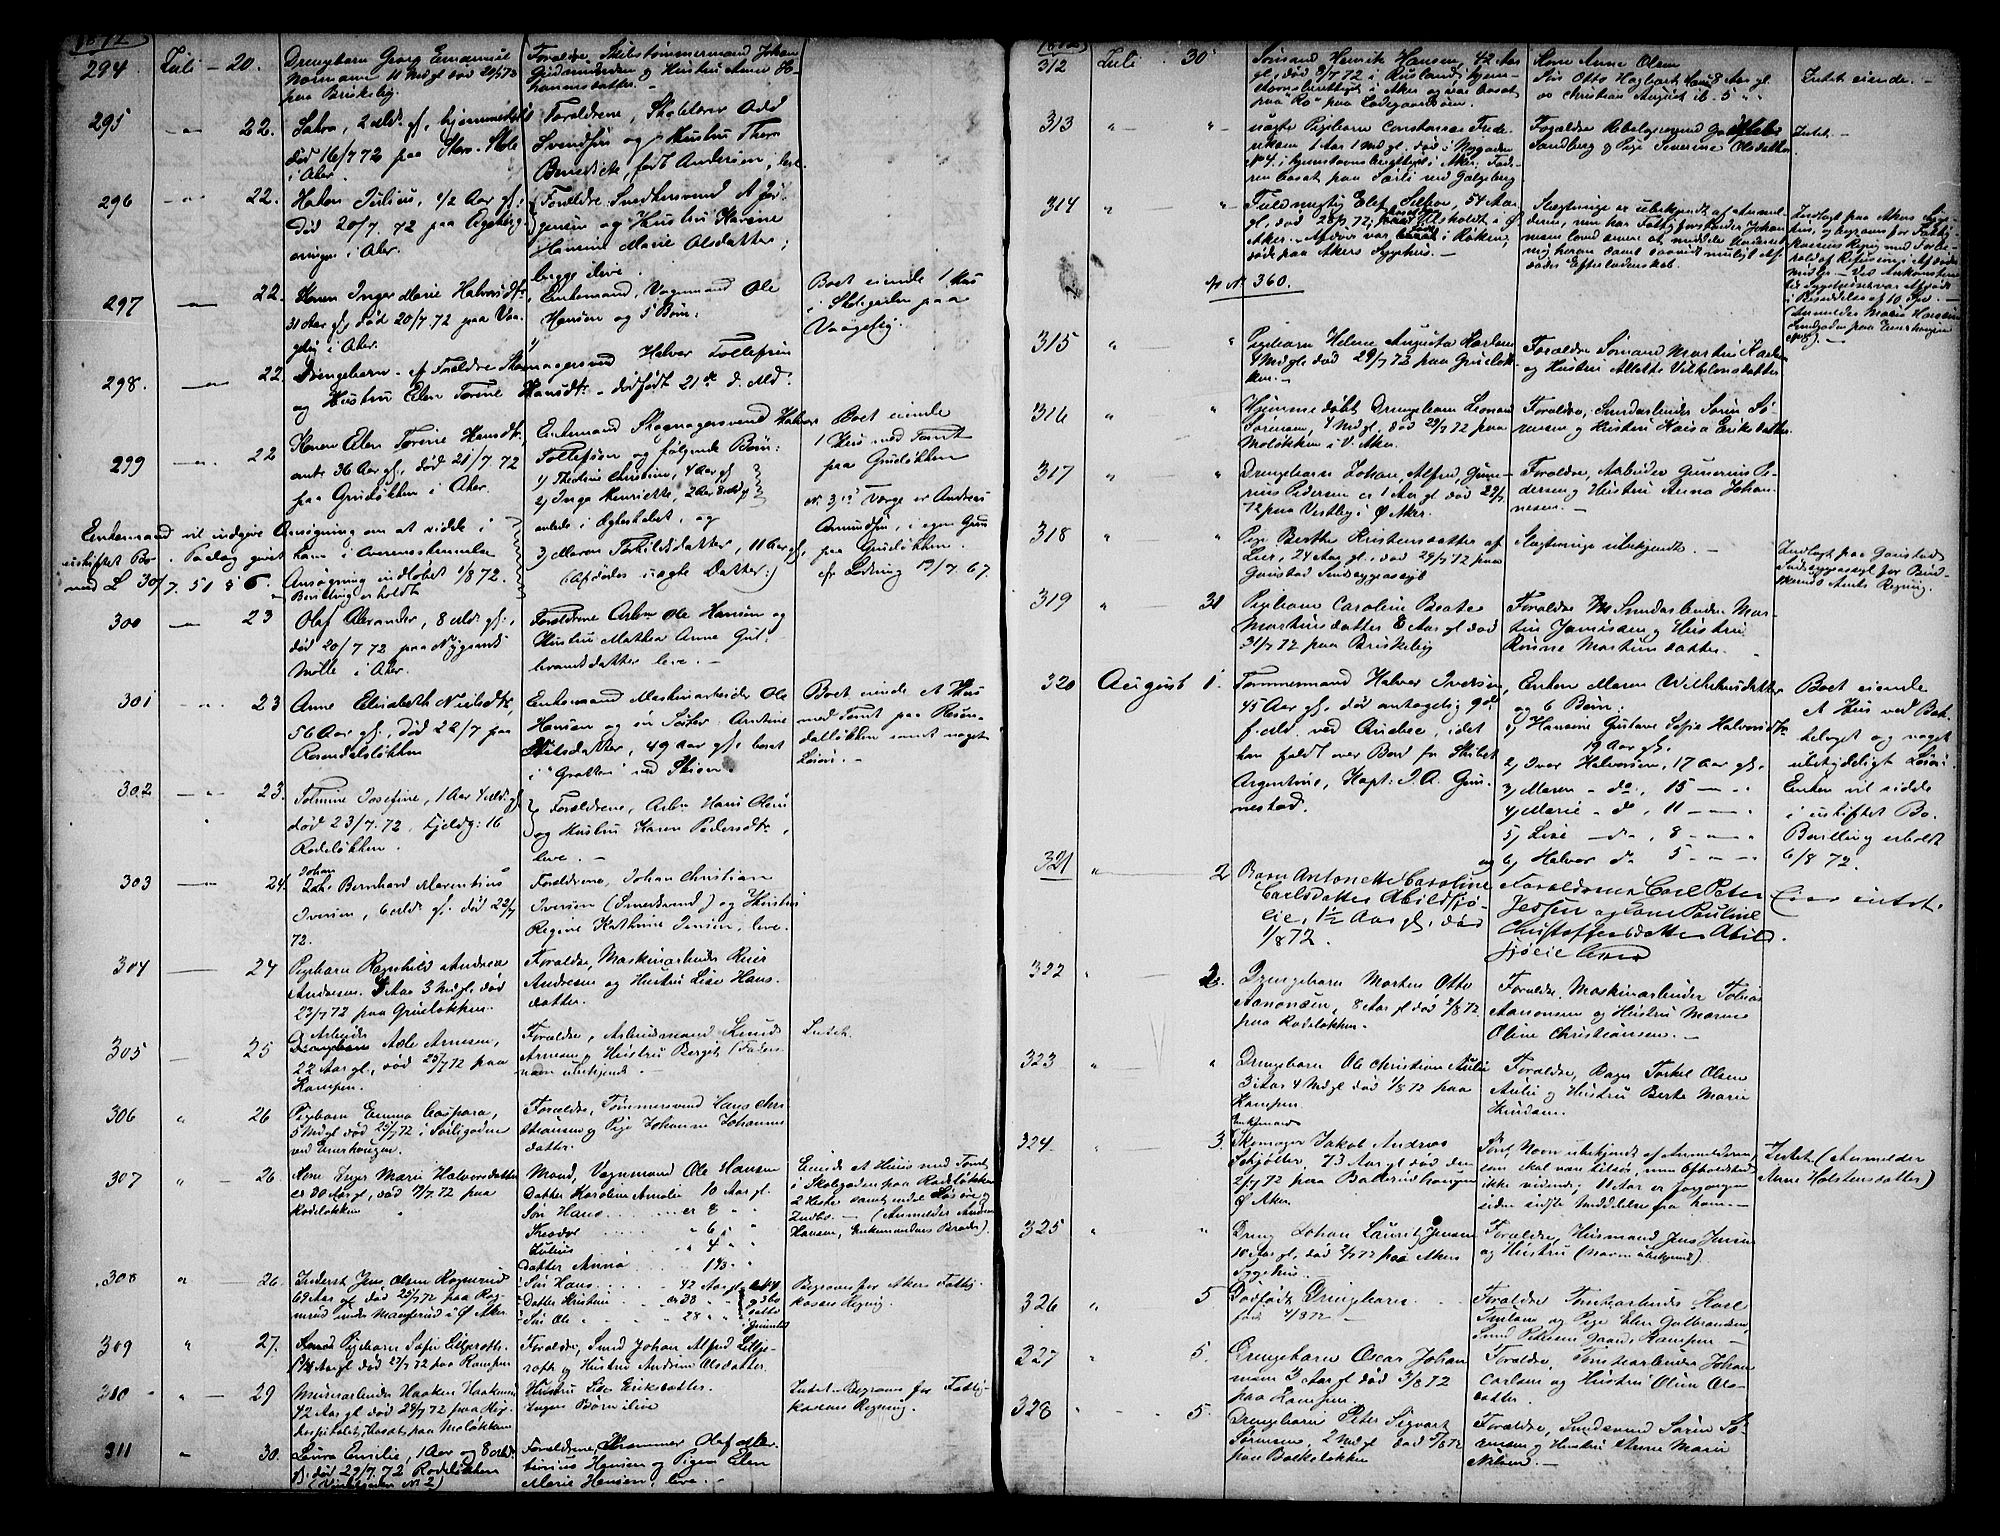 1872
294. Juli - 20. Drengebarn Georg Emanuel
Normann 11 Mdgl død 20/7 72
paa Briskeby.
Forældre, Skibstømmermand Johan
Gudmundsen og Hustru Anne Jo-
hannesdatter.
295 — 22. 2 Mdr. gl., hjemmedøbt
død 16/7 72 paa Store-
i Aker.
Forældrene, Skolelærer Odd
Svendsen og Hustru Thora
Benedicte, født Andersen, leve.
296 — 22. Hakon Julius, 1/2 Aar gl.,
død 20/7. 72 paa
i Aker.
Forældre Snedkersvend A. Jør-
gensen og Hustru Karine
Hansine Marie Olsdatter,
begge ilive.
297 — 22. Konen Inger Marie Halvorsdtr.
31 Aar gl., død 20/7.72 paa
i Aker.
Enkemand, Vognmand Ole
Hansen og 5 Børn.
Boet eiende 1 Hus
i Skolegaden paa
298. — 22. Drengebarn af Forældre Skomagersvend Halvor Tollefsen
og Hustru Elen Torine Hansdtr. - dødfødt 21de d. Md.
299 — 22 Konen Elen Torine Hansdtr.
36 Aar gl., død 21/7.72
paa Grünløkken i Aker.
Enkemand Skomagersvend Halvor
Tollefsen og følgende Børn:
1) Thedine Christine, 4 Aar gl.
2) Inga Henriette, 2 Aar 8 Mdr.
avlede i Ægteskabet, og
3) Maren Torkildsdatter, 11 Aar gl.
(Afdødes uægte Datter.)
Boet eiende
1 Hus med Tomt
paa Grünløkken
N. 3, Værge er Andreas
Amundsen, i egen Gaard
paa Grünløkken.
19/7. 67.
Enkemand vil indgive Ansøgning om at sidde i
uskiftet Bo.
Ansøgning indkøbet 1/8 72.
Bevilling erholdt
300 — 23 Olaf Alexander, 8 Mdr. gl.,
død 20/7 72 paa Nygaards
Mølle i Aker.
Forældrene Arbr. Ole Hansen og
Hustru Mathea Anne Gul-
brandsdatter leve. —
301 — 23 Anne Elisabeth Nielsdtr.
56 Aar gl., død 22/7 paa
Rosendalsløkken
Enkemand Maskinarbeider Ole
Hansen og en Søster Andrine
Nilsdatter, 49 Aar gl., boset
i "Gratten" ved Skien.
Boet eiende et Hus
med Tomt paa Rosen-
dalløkken samt noget
Løsøre.
302 — 23. Josefine, 1 Aar 4 Mdr. gl
død 23/7. 72, Fjeldg: 16
Rodeløkken.
Forældrene, Arbr. Hans Olsen
og Hustru Karen Pedersdtr.,
leve. —
303 — 24. Johan
Bernhard Marentius
Iversen, 6 Mdr. gl. død 22/7
72.
Forældrene, Johan Christian
Iversen (Smedsvend) og Hustru
Regine Kathrine Jensen, leve.
304 — 24 Pigebarn Ragnhild Andrea
Andersen. Aar 3 Mdgl, død
23/7 72 paa Grünløkken.
Forældre, Maskinarbeider Reier
Andresen og Hustru Lise Hans-
datter.
305 — 25 Arbeider
Arnesen,
22 Aar gl, død 25/7 72 paa
Kampen.
Forældre, Arbeidsmand Knud
Arnesen og Hustru Bergit (Faders-
navn ubekjendt. —
Intet.
306 " 26 Pigebarn Emma Caspara,
5 Mdgl død 25/7 72 i
ved Enerhougen.
Forældre, Tømmersvend Hans Chri-
stiansen og Pige Johanne Johannes-
datter.
307 " - 26. Kone Inger Marie Halvorsdatter
er 30 Aar gl, død 19/7. 72 paa
Rodeløkken
Mand, Vognmand Ole Hansen
Datter Karoline Amalie 10 Aar gl.
Søn Hans er 8 " "
Theodor 6 "
Julius " 4 " "
Datter Anna 1 1/3 " "
Eiende et Huus med Tomt
i Skolegaden paa Rodeløkken
2 Heste samt endel Løsøre og
Indbo. — (Anmelder Anders
Hansen, Enkemandens Broder).
308 " - 26. Inderst Jens Olsen Rognerud
69 Aar gl, død 25/7 72 paa Rog-
nerud under Manglerud i Ø Aker.
Søn Hans 42 Aar gl
Datter Kristine er 38 " "
Søn Ole 28 " "
Begraves for Akers Fattig-
kasses Regning.
309 " 27. Pigebarn Sofie
Aar gl død 27/7 72 paa Kampen
Forældre, Smed Johan Alfred
og Hustru Andrine Olsdatter.
310 " - 29 Murerarbeider Haaken Haakensen
42 Aar gl død 28/7 72 paa Rigs-
hospitalet, bosat paa Meløkken
Hustru Lise Eriksdatter.
Ingen Børn ilive
Intet. Begraves for Fattig-
kassens Regning.
311 " 30. Laura Emilie, 1 Aar og 8 Mdr.
gl. død 29/7. 72 Rodeløkken
N. 2)
Forældrene, Olaf
Hansen og Pigen Elen
Marie Hansen, leve. —
1872
312 Juli 30 Sømand Henrik Hansen, 42 Aar
gl, død 9/7 72 i Rusland, hjem-
stavnsberettiget i Aker og var bosat
paa "Ro" paa Ladegaardsøen.
Kone Anne Olsen
Søn Otto Hagbart 8 Aar gl.
do Christian August ib. 5 " "
Intet eiende. —
313 " — " Uægte Pigebarn Constanse Frede-
rikken 1 Aar 1 Mdgl. død i Nygaden
N. 4. hjemstavnsberettiget i Aker. Fad-
ren bosat paa Sørli ved Galgeberg
Forældre Rebslagersvend
Sandberg og Pige Severine Olsdatter
Intet. —
314 " — " Fuldmægtig Elef, 54 Aar
gl, død 28/7 72, i Ø
Aker. Afdøde var født i Røken,
døde paa Akers Sygehus. —
Slægtninge er ubekjendt af Anmel-
deren, men har Fattigforstander Johan-
nesen lovet
dødes Efterladenskab.
Indlagt paa Akers Syge-
hus, og begraves for Fattig-
kassens Regning
fr. N. 360.
315 " " Pigebarn Helene Augusta Karlsen
4 Mdgl død 29/7 72 paa Grünløk-
ken.—
Forældre Sømand Martin Karlsen
og Hustru Alette Vilhelmsdatter
316 " " Hjemmedøbt Drengebarn Leonard
Sørensen, 4 Mdgl. død 29/7 72 paa
Meløkken i V. Aker.
Forældre, Smedarbeider Søren Sø-
rensen og Hustru Kaisa Eriksdatter
317 " " Drengebarn Johan Alfred Gune-
rius Pedersen er 1 Aar gl død 29/7
72 paa Vestby i Ø Aker.
Forældre, Arbeider Gunerius Pe-
dersen og Hustru Anna Johan-
nesen.
318 " " Pige Berthe Kristensdatter af
Lier, 24 Aar gl. død 29/7 72 paa
Gaustad Sindssygeasyl
Slægtninge ubekjendt. —
Indlagt paa Gaustads
Sindssygeasyl for Bus-
keruds Amts Regning.
319 " 31 Pigebarn Caroline Beate
Martinsdatter 8 Aar gl død
31/7 72 paa Briskeby
Forældre Smedarbeider Mar-
tin og Hustru
Martinsdatter.
320 August 1. Tømmermand Halvor Iversen,
45 Aar gl., død antagelig 9de
f. Md. ved Quebec, idet
han faldt over Bord fr. Skibet
Argentine, Kapt: J. A. Gun-
nestad.
Enken Maren Wilhelmsdatter
og 6 Børn:
1) Hansine Gustave Sofie Halvorsdtr
19 Aar gl.
2) Iver Halvorsen, 17 Aar gl.
3) Maren - do, 15 — " —
4) Marie - do, 11 — " —
5) Lise — do, 8 — " —
og 6) Halvor do 5 — " —
Boet eiende
et Hus ved Bek-
kelaget og noget
ubetydeligt Løsøre
Enken vil sidde
i uskiftet Bo.
Bevilling erholdt
6/8 72.
321 " 2 Barn Antonette Caroline
Carlsdatter Abildsjø-
eie, 1 1/2 Aar gl, død
1/8 72.
Forældrene Carl Peter
Jessen og Pauline
Christoffersdatter Abild-
sjøeie
Eier intet.
322 " 2. Drengebarn Morten Otto
Aanonsen, 8 Aar gl død 2/8 72
paa Rodeløkken.
Forældre, Maskinarbeider Tobias
Aanonsen og Hustru Maren
Oline Christiansen. —
323 " " Drengebarn Ole Christian Aulie
3 Aar 4 Mdgl død 1/8 72 paa
Kampen
Forældre, Bager Torkel Olsen
Aulie og Hustru Berte Marie
Knudsen.
324 " 3 Enkemand
Skomager Jakob Andreas
Schjøtter, 73 Aar gl død den
2/7 72 paa
Ø Aker.
Søn, Navn ubekjendt af Anmelderen,
som skal var tilsøs, men Opholdsted
ikke vidende; 11 Aar er forgangen
siden sidste Meddelelse fra ham. —
Intet (Anmelder
Anne Holstensdatter)
325 " " Dreng Johan Lauritz Jensen
10 Aar gl, død 2/7 72 paa Akers
Sygehus.
Forældre, Husmand Jens Jensen
og Hustru (Navn ubekjend).
326 " 5 Dødfødt Drengebarn
født 4/8 72 —
Forældre Tomtearbeider Karl
og Pige Eline Gulbrandsen,
Smed Petersens Gaard, Kampen —
327 " 5. Drengebarn Oscar Johan-
nsen 3 Aar gl død 3/8 72
paa Kampen.
Forældre, Tomtearbeider Johan
Carlsen og Hustru Oline Ols-
datter.
328 " 5. Drengebarn Peter Sigvart
Sørensen 2 Mdgl død 5/8 72
paa Bakkeløkken
Forældre, Smedesvend Søren Sø-
rensen og Hustru Anne Marie
Nilsen. —